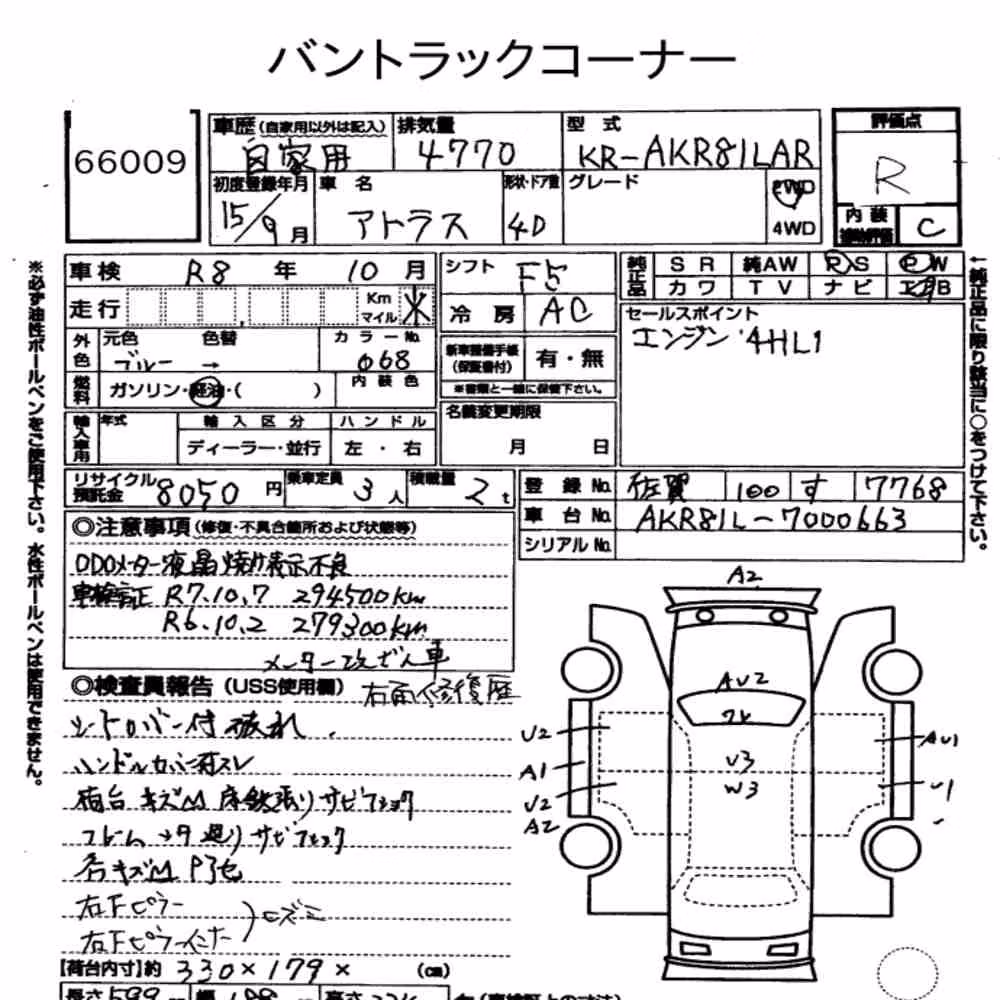 バントラックコーナー
66009
車歴 (自家用以外は記入) 自家用
排気量 4770
型式 KR-AKR81LAR
評価点 R
初度登録年月 15/9月
車名 アトラス
形状・ドア数 4D
グレード
2WD
4WD
内装 補助評価 C
車検 R8年 10月
シフト F5
純正品 SR 純AW PS PW
カワ TV ナビ エアB
走行 Km マイル
冷房 AC
セールスポイント
エンジン '4HL1
外色 元色 ブルー → 色替
カラーNo. 068
新車整備手帳 (保証書付) 有・無
※書類と一緒に保管下さい。
燃料 ガソリン・軽油・( )
内装色
名義変更期限 月 日
輸入車用 年式
輸入区分 ディーラー・並行
ハンドル 左・右
リサイクル預託金 8050円
乗車定員 3人
積載量 2t
登録No. 佐賀 100 す 7768
車台No. AKR81L-7000663
シリアルNo.
◎注意事項 (修復・不具合箇所および状態等)
ODOメーター液晶焼け表示不良
車検証正 R7.10.7 294500km
R6.10.2 279300km
メーター改ざん車
◎検査員報告 (USS使用欄) 右面修復歴
シートカバー付 破れ
ハンドルカバー スレ
荷台 キズM 床鉄張りサビフショク
フレーム 廻りサビフショク
右下ピラー
右下ピラーインナー
ヒズミ
【荷台内寸】約 330×179× (cm)
A2
AU2
ワレ
U3
W3
U2
A1
U2
A2
AU1
U1
※必ず油性ボールペンをご使用下さい。水性ボールペンは使用できません。
←純正品に限り該当に○をつけて下さい。